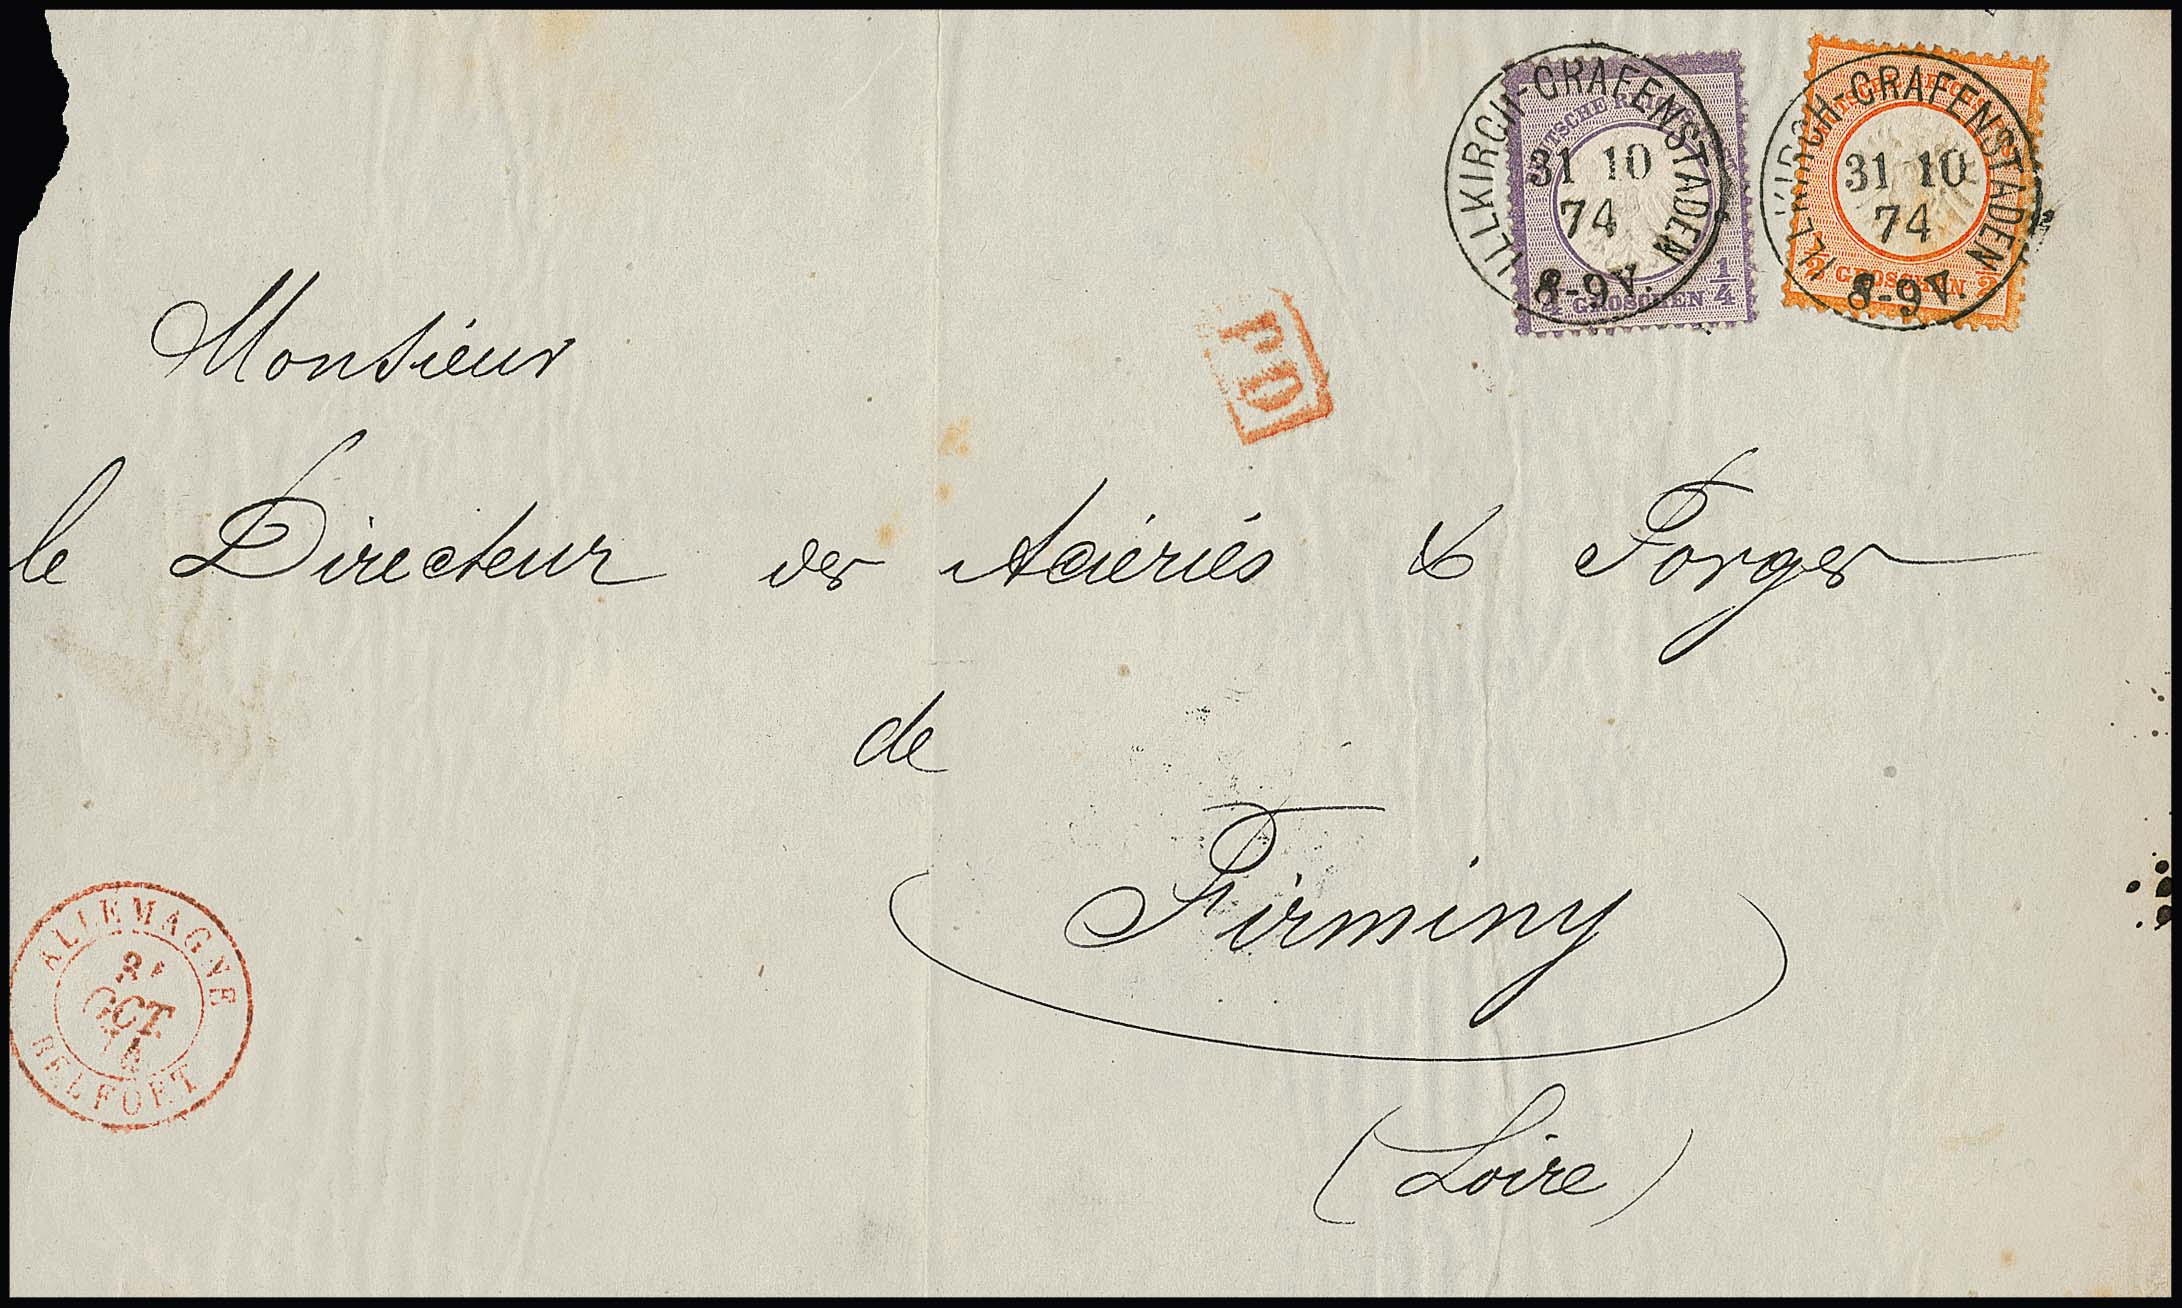 ILLKIRCH-GRAFENSTADEN
31 10
74
8-9 V.
DEUTSCHE REICHS
1/4 GROSCHEN 1/4
ILLKIRCH-GRAFENSTADEN
31 10
74
8-9 V.
1/2 GROSCHEN 1/2
PD
Monsieur
le Directeur des Aciéries & Forges
de
Firminy
(Loire)
ALLEMAGNE
31
OCT.
74
BELFORT